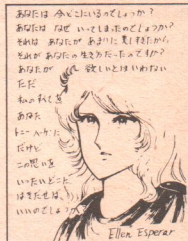 あなたは 今どこにいるのでしょうか?
あなたは なぜ いってしまったのでしょうか?
それは あなたが あまりに 美しすぎたから
それが あなたの 生き方だったのですか?
あなたが 欲しいとはいわない
ただ
私の
あなた
だけど
この思いを
いったいどこに
はきだせば、
いいのでしょうか
Ellen Esperar